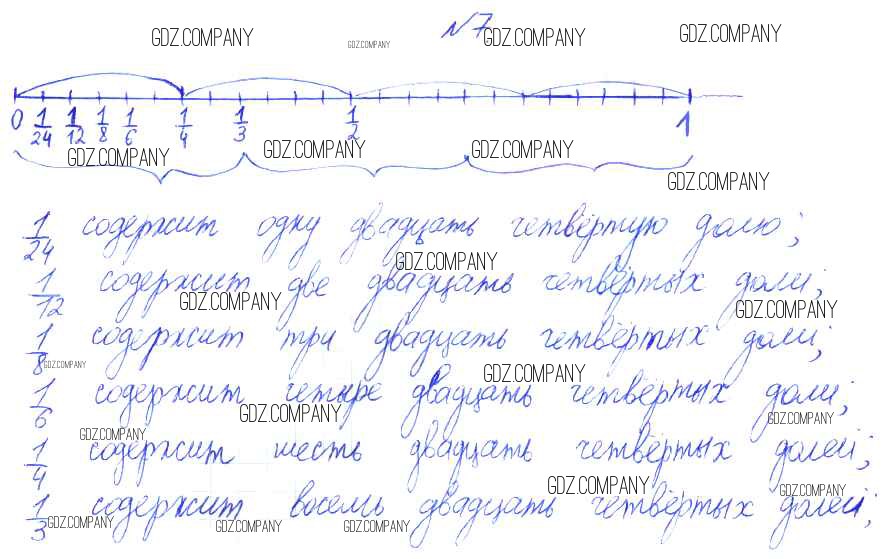 №7
GDZ.COMPANY GDZ.COMPANY GDZ.COMPANY GDZ.COMPANY
0 1/24 1/12 1/8 1/6 1/4 1/3 1/2 1
GDZ.COMPANY GDZ.COMPANY GDZ.COMPANY
GDZ.COMPANY
1/24 содержит одну двадцать четвёртую долю;
GDZ.COMPANY
1/12 содержит две двадцать четвёртых доли;
GDZ.COMPANY GDZ.COMPANY
1/8 содержит три двадцать четвёртых доли;
GDZ.COMPANY GDZ.COMPANY
1/6 содержит четыре двадцать четвёртых доли;
GDZ.COMPANY GDZ.COMPANY
GDZ.COMPANY
1/4 содержит шесть двадцать четвёртых долей;
GDZ.COMPANY GDZ.COMPANY
1/3 содержит восемь двадцать четвёртых долей;
GDZ.COMPANY GDZ.COMPANY GDZ.COMPANY